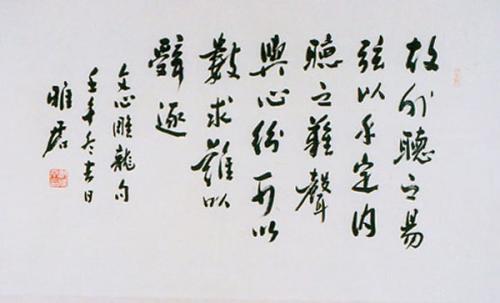 故外聽之易
弦以手定內
聽之難聲
與心紛可以
數求難以
辭逐
文心雕龍句
壬午冬書日